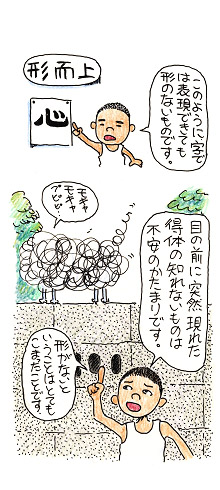 形而上
心
このように字で
は表現できても
形のないものです。
モキャ
モキャ
目の前に突然現れた
得体の知れないものは
不安のかたまりです。
形がないと
いうことはとても
こまたことです。